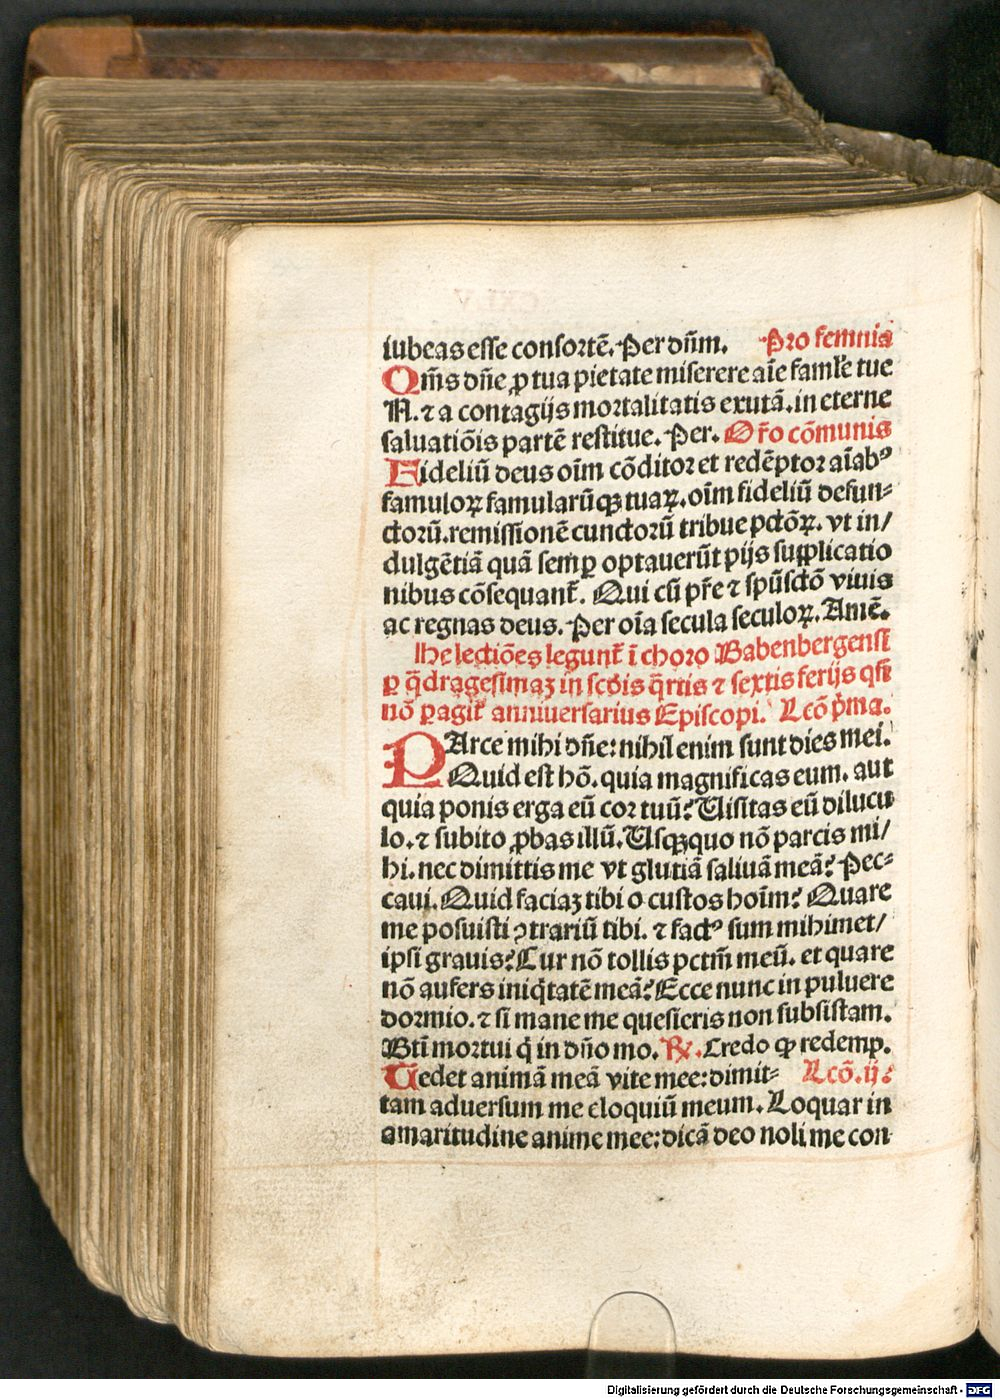 iubeas esse consortē. Per dn̄m. Pro femnis
Om̄s dn̄e ꝓ tua pietate miserere aīe famłe tue
N. ⁊ a contagijs mortalitatis exutā. in eterne
saluatiōis partē restitue. Per. Or̄o cōmunis
Fideliū deus oīm cōditor et redēptor aīabꝰ
famuloꝝ famularūqꝫ tuaꝝ. oīm fideliū defun⸗
ctorū. remissionē cunctorū tribue pctōꝝ. vt in/
dulgētiā quā semꝑ optauerūt pijs supplicatio
nibus cōsequant᷑. Qui cū pr̄e ⁊ spūsctō viuis
ac regnas deus. Per oīa secula seculoꝝ. Amē.
Ihe lectiōes legunt᷑ ī choro Babenbergensi
ꝑ q̄dragesimaꝫ in scd̄is q̄rtis ⁊ sextis ferijs qn̄
nō ꝑagit᷑ anniuersarius Episcopi. Lcō p̄ma.
PArce mihi dn̄e: nihil enim sunt dies mei.
Quid est hō. quia magnificas eum. aut
quia ponis erga eū cor tuū? Uisitas eū dilucu
lo. ⁊ subito ꝓbas illū. Usqꝫquo nō parcis mi/
hi. nec dimittis me vt glutiā saliuā meā? Pec⸗
caui. Quid faciaꝫ tibi o custos hoīm? Quare
me posuisti ꝯtrariū tibi. ⁊ factꝰ sum mihimet/
ipsi grauis? Cur nō tollis pctm̄ meū. et quare
nō aufers iniq̄tatē meā? Ecce nunc in puluere
dormio. ⁊ si mane me quesieris non subsistam.
Btī mortui q̄ in dn̄o mo. ℟. Credo ꝙ redemp.
Tedet animā meā vite mee: dimit⸗ Lcō. ij?
tam aduersum me eloquiū meum. Loquar in
amaritudine anime mee: dicā deo noli me con
Digitalisierung gefördert durch die Deutsche Forschungsgemeinschaft - DFG